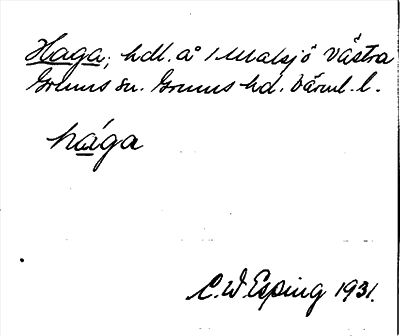 Haga, hdl. å 1 Malsjö Västra
Grums sn. Grums hd. Värml. l.
hága
C. W. Esping 1931.